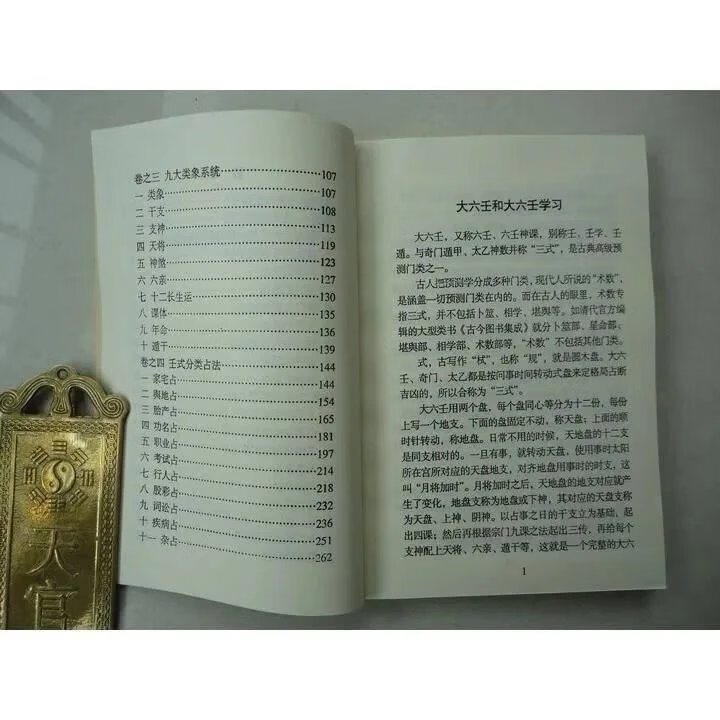 卷之三 九大类象系统……107
一 类象……107
二 干支……108
三 支神……113
四 天将……119
五 神煞……123
六 六亲……127
七 十二长生运……130
八 课体……135
九 年命……136
十 遁干……141
卷之四 壬式分类占法……144
一 家宅占……144
二 舆地占……154
三 胎产占……165
四 功名占……181
五 职业占……197
六 考试占……214
七 行人占……218
八 股彩占……232
九 词讼占……236
十 疾病占……251
十一 杂占……262
大六壬和大六壬学习
大六壬，又称六壬、六壬神课，别称壬、壬学、壬
遁。与奇门遁甲、太乙神数并称“三式”，是古典高级预
测门类之一。
古人把预测学分成多种门类，现代人所说的“术数”，
是涵盖一切预测门类在内的。而在古人的眼里，术数专
指三式，并不包括卜筮、相学、堪舆等。如清代官方编
辑的大型类书《古今图书集成》就分卜筮部、星命部、
堪舆部、相学部、术数部等，“术数”不包括其他门类。
式，古写作“栻”，也称“规”，就是圆木盘。大六
壬、奇门、太乙都是按问事时间转动式盘来定格局占断
吉凶的，所以合称为“三式”。
大六壬用两个盘，每个盘同心等分为十二份，每份
上写一个地支。下面的盘固定不动，称天盘；上面的顺
时针转动，称地盘。日常不用的时候，天地盘的十二支
是同支相对的。一旦有事，就转动天盘，使用事时太阳
所在宫所对应的天盘地支，对齐地盘用事时的时支，这
叫“月将加时”。月将加时之后，天地盘的地支对应就产
生了变化，地盘支称为地盘或下神，其对应的天盘支称
为天盘、上神、阴神。以占事之日的干支立为基础，起
出四课；然后再根据宗门九课之法起出三传，再给每个
支神配上天将、六亲、遁干等，这就是一个完整的大六
1
天官